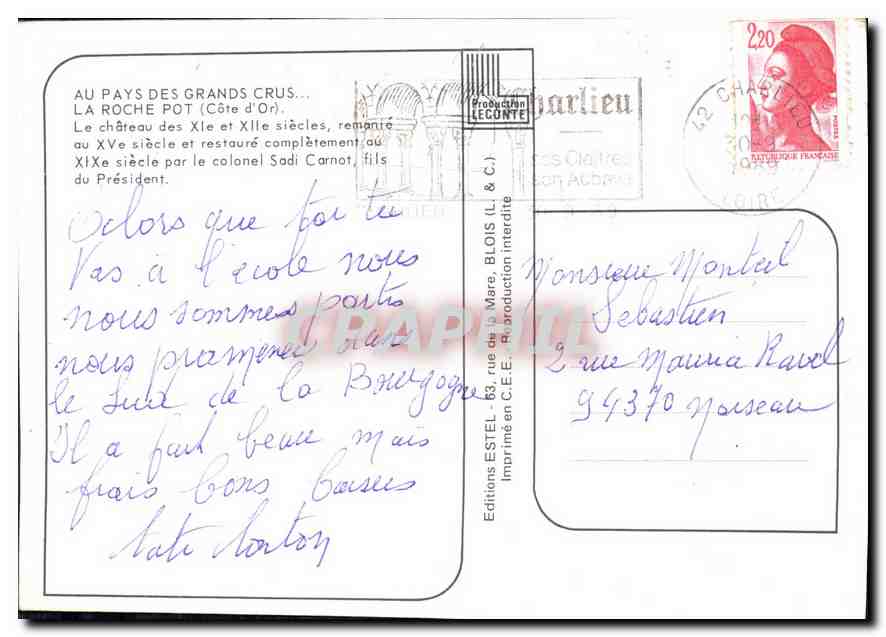 AU PAYS DES GRANDS CRUS...
LA ROCHE POT (Côte d'Or).
Le château des XIe et XIIe siècles, remanié
au XVe siècle et restauré complètement au
XIXe siècle par le colonel Sadi Carnot, fils
du Président.
que toi tu
Vas à l'école nous
nous sommes partis
nous promener dans
le Sud de la Bourgogne
Il a fait beau mais
frais bons baisers
Production
LECONTE
Charlieu
ses Cloîtres
son Abbaye
42 CHARLIEU
1989
LOIRE
2,20
POSTES
REPUBLIQUE FRANÇAISE
Editions ESTEL - 63, rue de la Mare, BLOIS (L. & C.)
Imprimé en C.E.E. Reproduction interdite
Monsieur Monteil
Sébastien
2 rue Maurice Ravel
94370 Noiseau
CPAPHIL